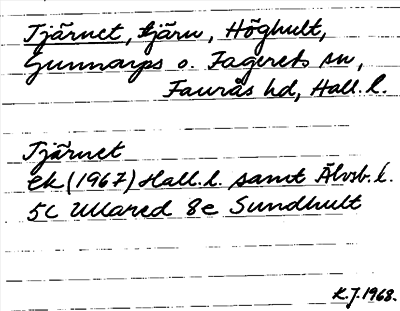 Tjärnet, tjärn, Höghult,
Gunnarps o. Fagereds sn,
Faurås hd, Hall. l.
Tjärnet
ek (1967) Hall. l. samt Älvsb. l.
5C Ullared 8e Sundhult
K.J. 1968.